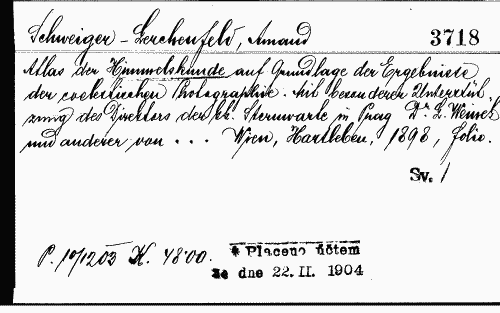 Schweiger-Lerchenfeld, Amand 3718
Atlas der Himmelskunde auf Grundlage der Ergebnisse
der coelestischen Photographie. Mit besonderer Unterstüt
zung des Direktors der kk. Sternwarte in Prag Dr. L. Weinek
und anderer von . . . Wien, Hartleben, 1898, folio.
Sv. 1
P. 10/1203 K. 48·00. * Placeno účtem
ze dne 22. II. 1904